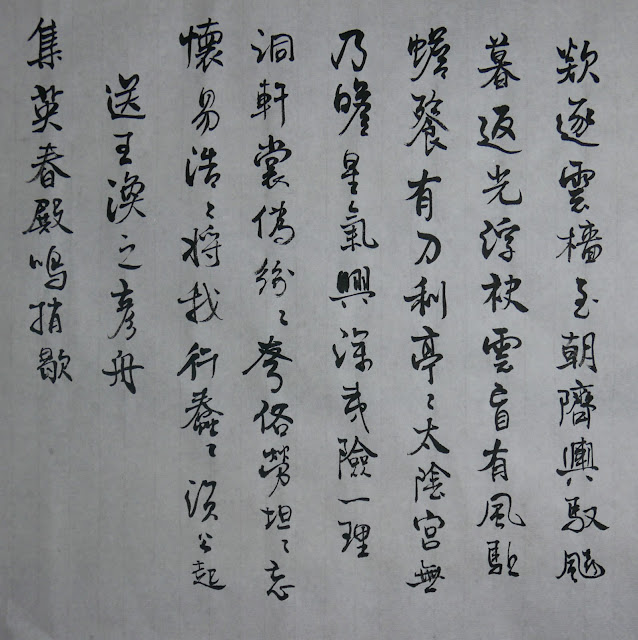 欻逐雲檣至朝隮輿馭飈
暮返光浮袂雲盲有風駈
蟾餮有刀利亭〻太陰宮無
乃瞻星氣興深夷險一理
洞軒裳偽紛〻夸俗勞坦〻忘
懷易浩〻將我行蠢〻須公起
送王渙之彥舟
集英春殿鳴捎歇